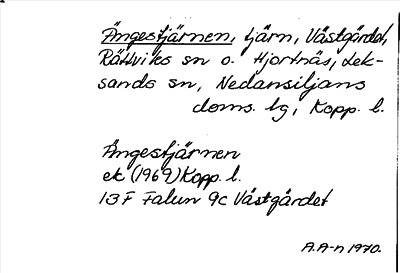 Ängestjärnen, tjärn, Västgärdet,
Rättviks sn o. Hjortnäs, Lek-
sands sn, Nedansiljans
doms. lg, Kopp. l.
Ängestjärnen
ek (1969) Kopp. l.
13F Falun 9c Västgärdet
A.A-n 1970.